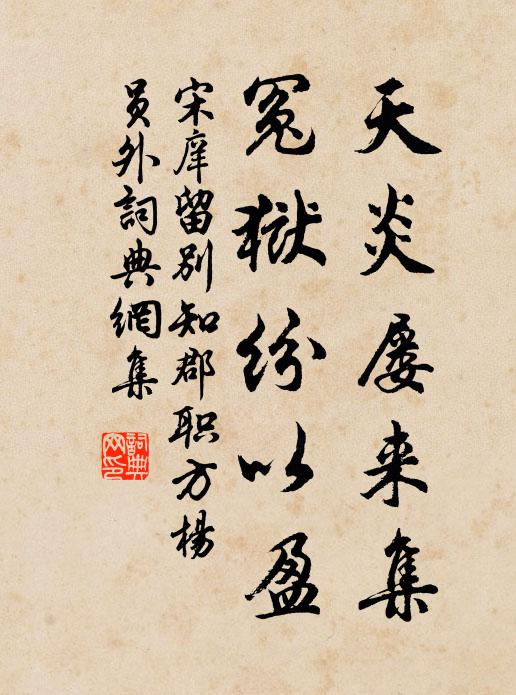 天炎屡来集
冤獄纷以盈
宋庠留别知郡职方楊
员外詞典網集
詞典网印